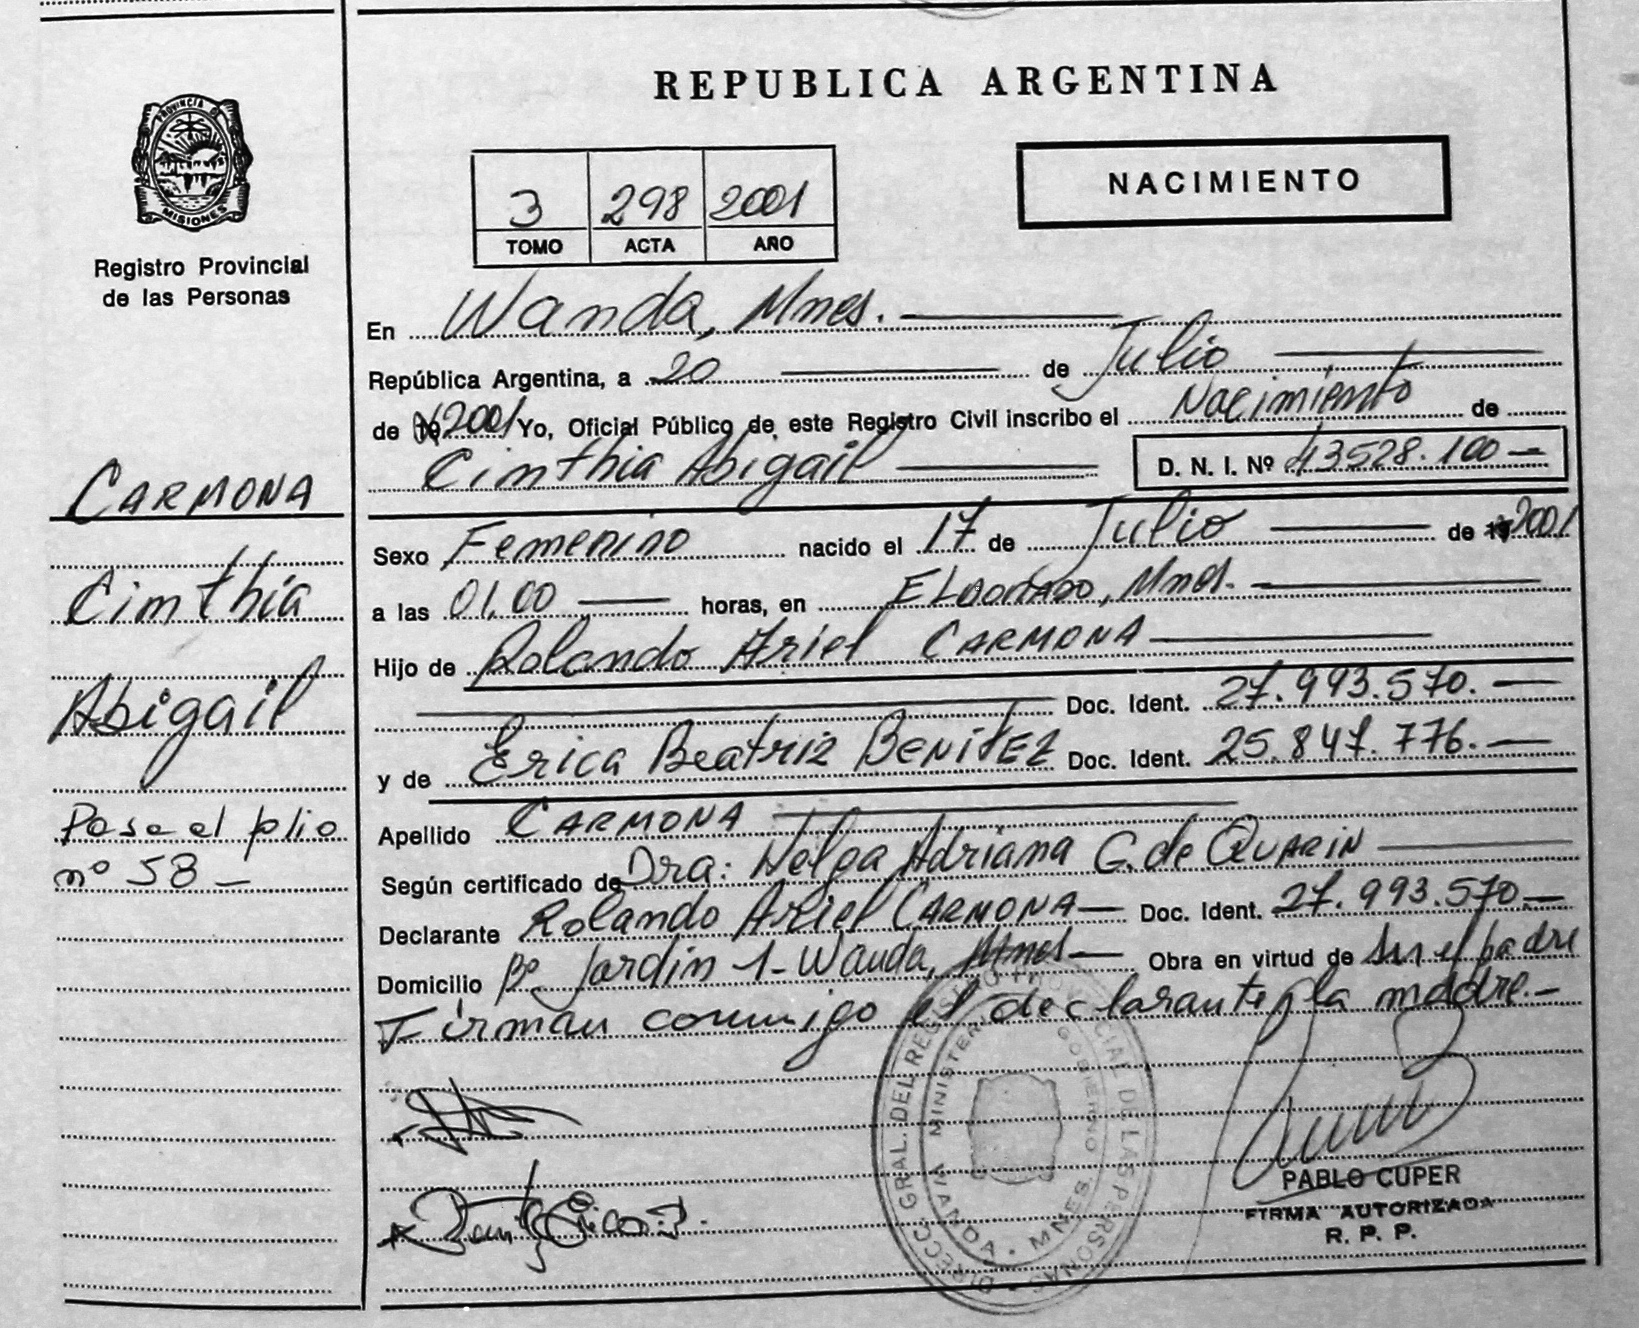 REPUBLICA ARGENTINA
PROVINCIA DE
MISIONES
Registro Provincial
de las Personas
NACIMIENTO
3 298 2001
TOMO ACTA AÑO
En Wanda, Mnes.
República Argentina, a 20 de Julio
de 19 2001 Yo, Oficial Público de este Registro Civil inscribo el Nacimiento de
Cinthia Abigail D. N. I. Nº 43528.100
Sexo Femenino nacido el 17 de Julio de 19 2001
a las 01,00 horas, en ELDORADO, Mnes.
Hijo de Rolando Ariel CARMONA
Doc. Ident. 27.993.570.
y de Erica Beatriz BENITEZ Doc. Ident. 25.847.776.
Apellido CARMONA
Según certificado de Dra: Nelga Adriana G. de QUARIN
Declarante Rolando Ariel CARMONA Doc. Ident. 27.993.570.
Domicilio Bº Jardin 1 - Wanda, Mnes Obra en virtud de ser el padre
Firman conmigo el declarante y la madre.
CARMONA
Cinthia
Abigail
Pase al folio
nº 58
DIRECC. GRAL. DEL REGISTRO PROVINCIAL DE LAS PERSONAS
MINISTERIO GOBIERNO
WANDA - MNES.
PABLO CUPER
FIRMA AUTORIZADA
R. P. P.